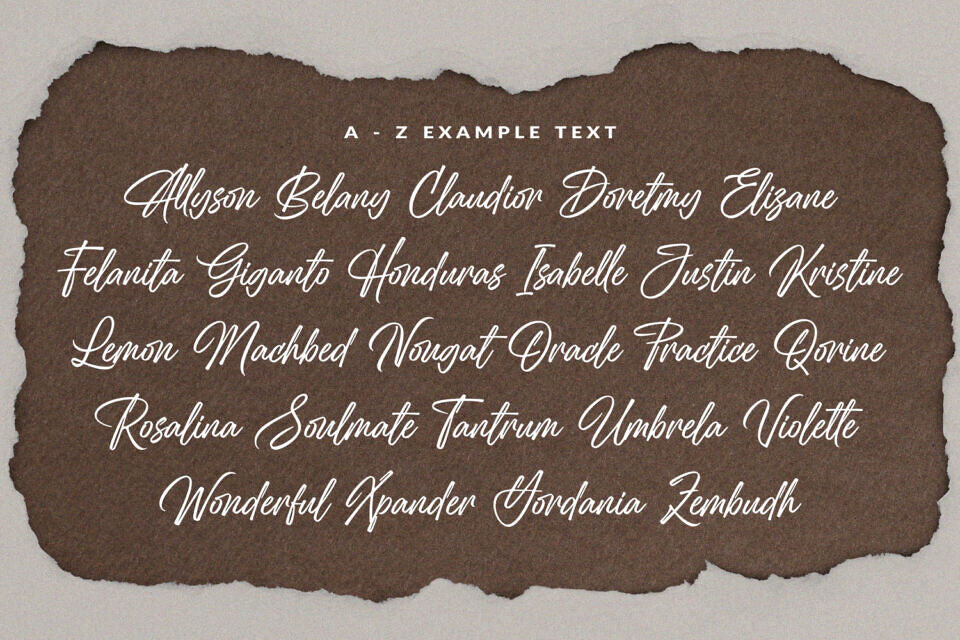 A - Z EXAMPLE TEXT
Allyson Belany Claudior Doretmy Elizane
Felanita Giganto Honduras Isabelle Justin Kristine
Lemon Machbed Nougat Oracle Practice Qorine
Rosalina Soulmate Tantrum Umbrela Violette
Wonderful Xpander Yordania Zembudh